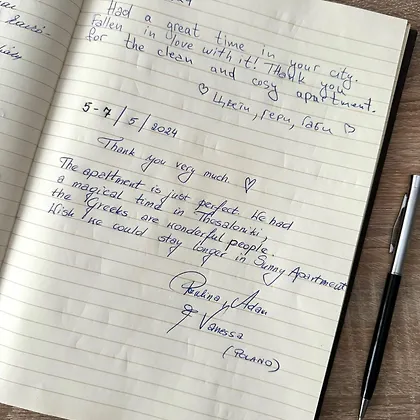 Had a great time in your city.
Fallen in love with it! Thank you
for the clean and cosy apartment.
♡ Цвети, Гери, Габи ♡
5-7/5/2024
Thank you very much ♡
The apartment is just perfect. We had
a magical time in Thesaloniki,
the Greeks are wonderful people.
Wish we could stay longer in Sunny Apartment
Paulina, Adam
& Vanessa
(POLAND)